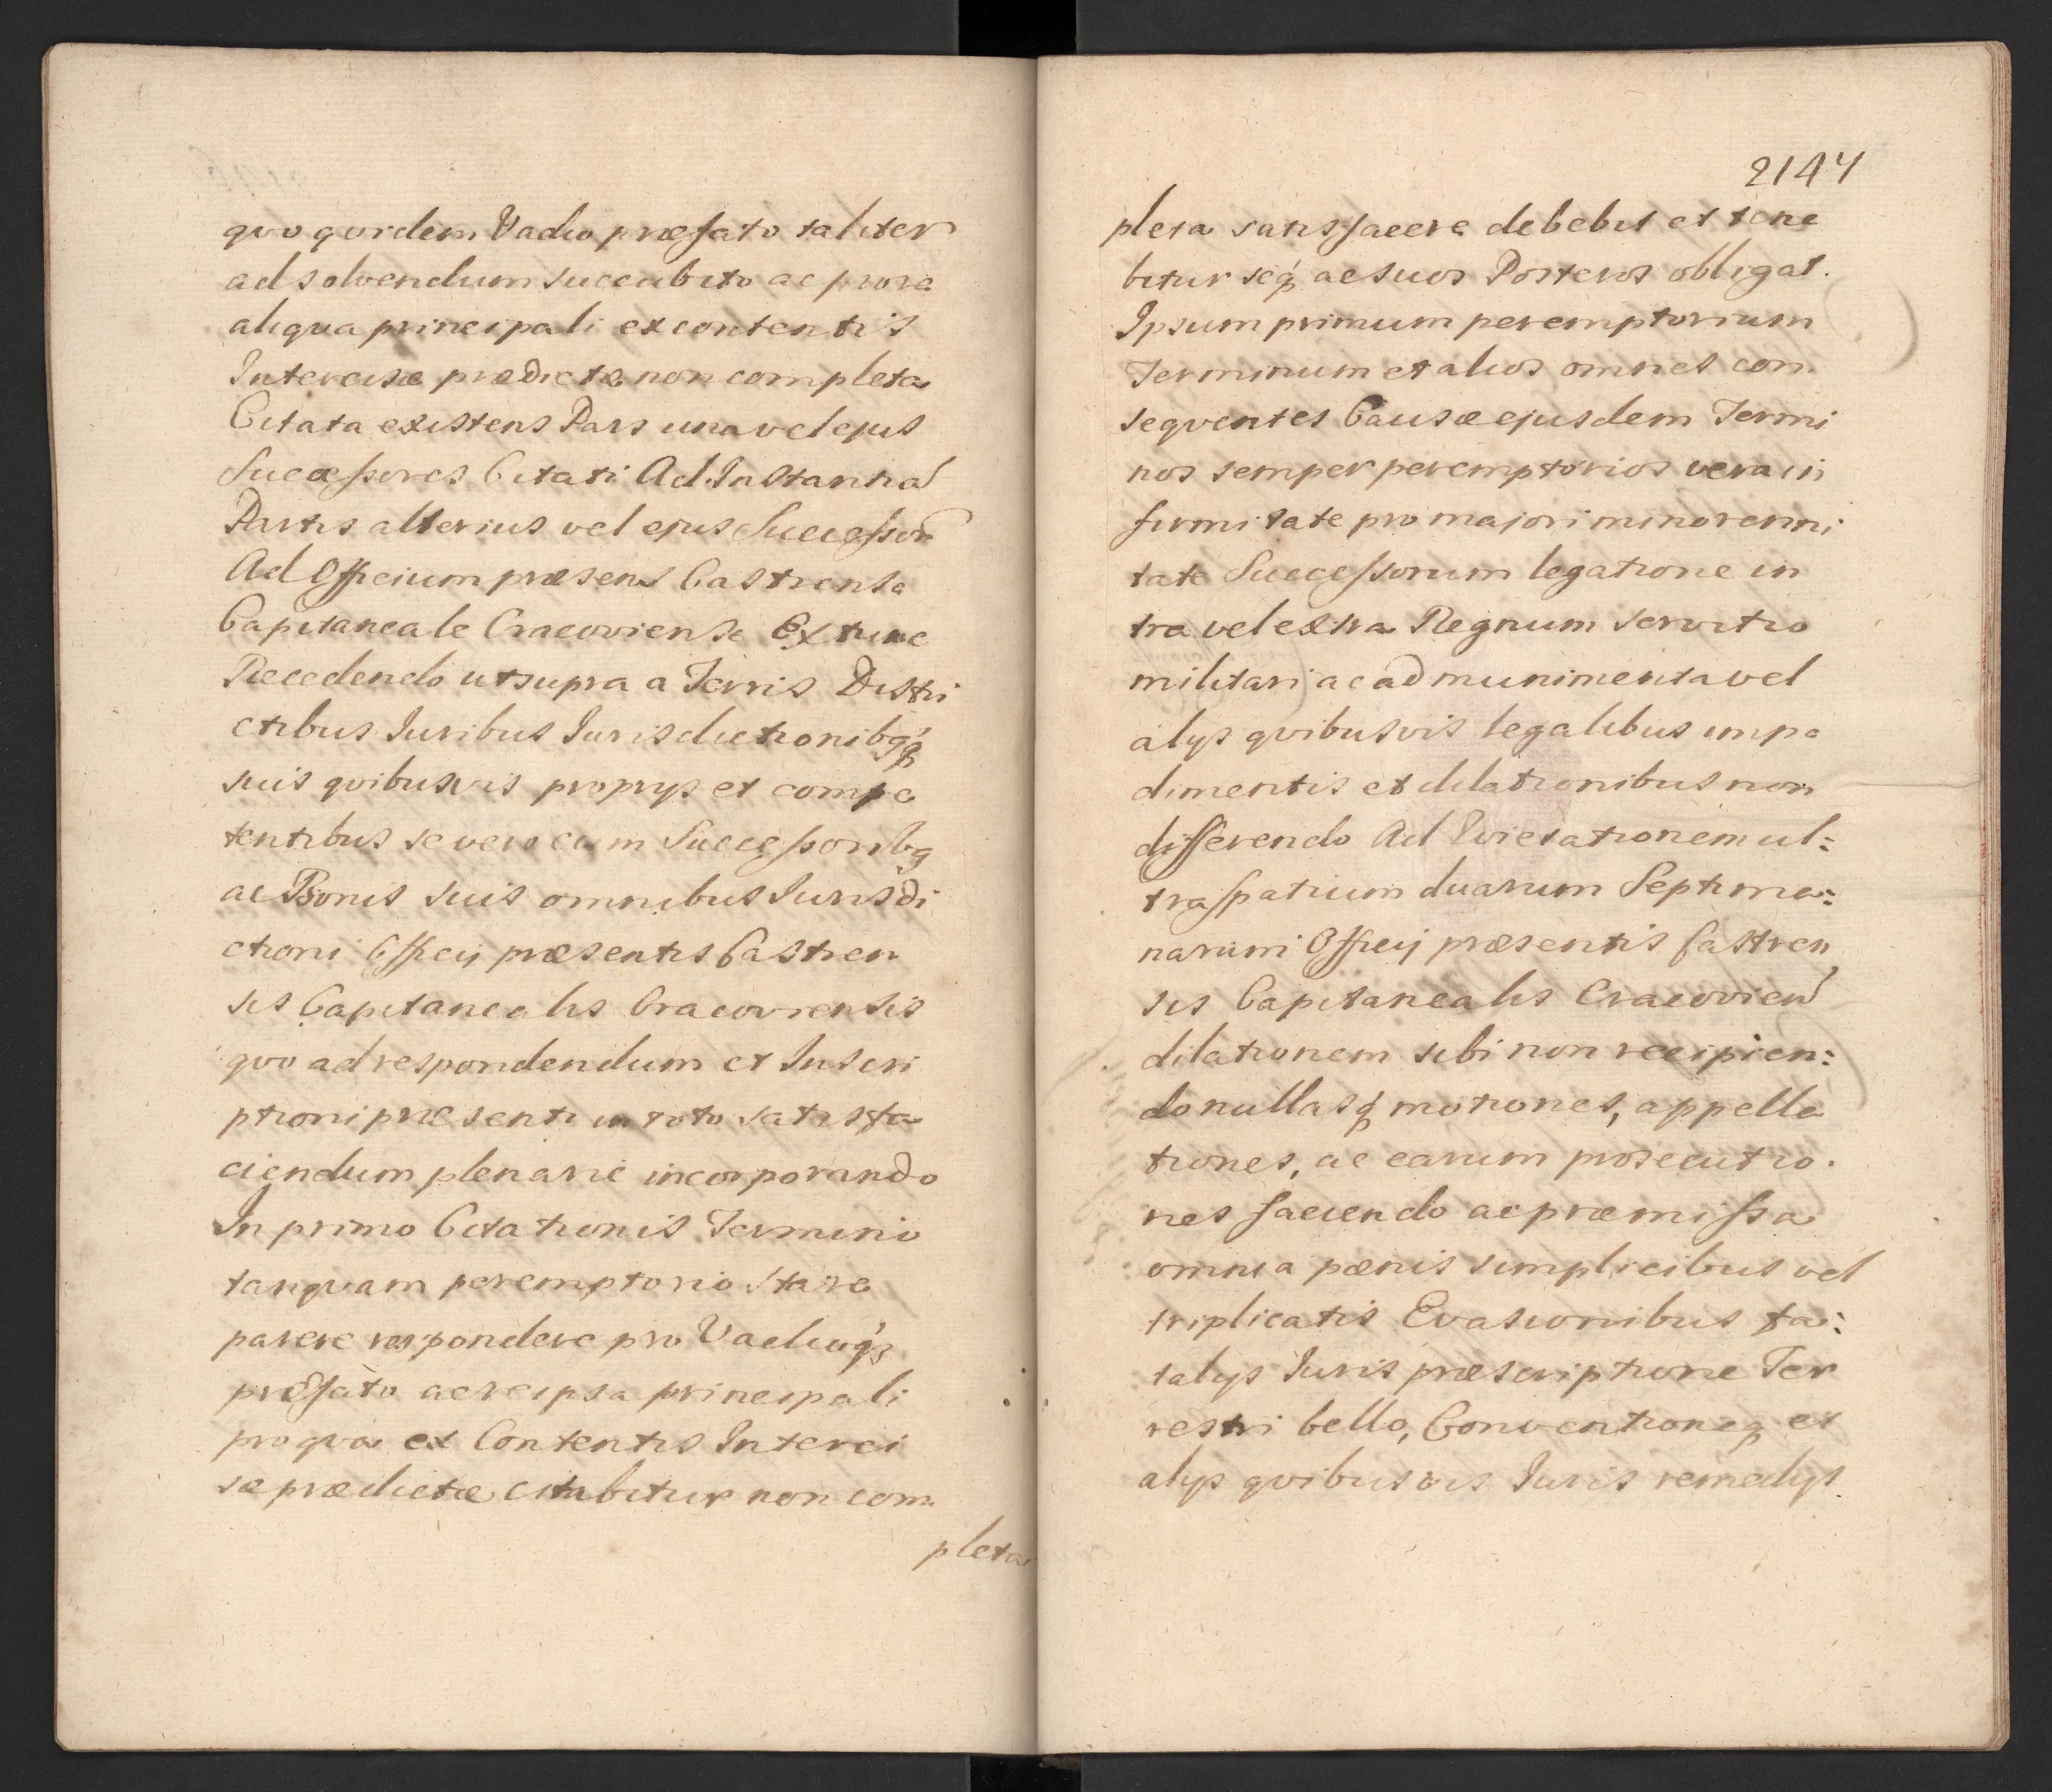 quo quidem Vadio præfato taliter
ad solvendum succubito ac pro re
aliqua principali ex contentis
Intercisæ prædictæ non completa
Citata existens Pars una vel ejus
Successores Citati Ad Instantiam
Partis alterius vel ejus Successorum
Ad Officium præsens Castrense
Capitaneale Cracoviense Ex tunc
Recedendo ut supra a Terris Distri
ctibus Iuribus Iurisdictionibq́ꝫ
suis quibusvis propryis et compe
tentibus se vero cum Successoribq
ac Bonis suis omnibus Iurisdi
ctioni Officij præsentis Castren
sis Capitanealis Cracoviensis
quo ad respondendum et Inscri
ptioni præsenti in toto satisfa
ciendum plenarie incorporando
In primo Citationis Termino
tanquam peremptorio stare
parere respondere pro Vadioq́ꝫ
præfato ac re ipsa principali
pro qua ex Contentis Interci
sæ prædictæ citabitur non com
pleta
2147
pleta satisfacere debebit et tene
bitur seq́ ac suos Posteros obligat.
Ipsum primum peremptorium
Terminum et alios omnes con
sequentes Causæ ejusdem Termi
nos semper peremptorios vera in
firmitate pro majori minorenni
tate Successorum legatione in
tra vel extra Regnum servitio
militari ac ad munimenta vel
alys quibusvis legalibus impe
dimentis et dilationibus non
differendo Ad Evictationem ul:
tra spatium duarum Septima:
narum Officij præsentis Castren
sis Capitanealis Cracovien
dilationem sibi non recipien:
do nullasq́ motiones, appella
tiones, ac earum prosecutio
nes faciendo ac præmissa
omnia pænis simplicibus vel
triplicatis Evasionibus fa:
talys Iuris præscriptione Ter
restri bello, Conventioneq et
alys quibusvis Iuris remedys